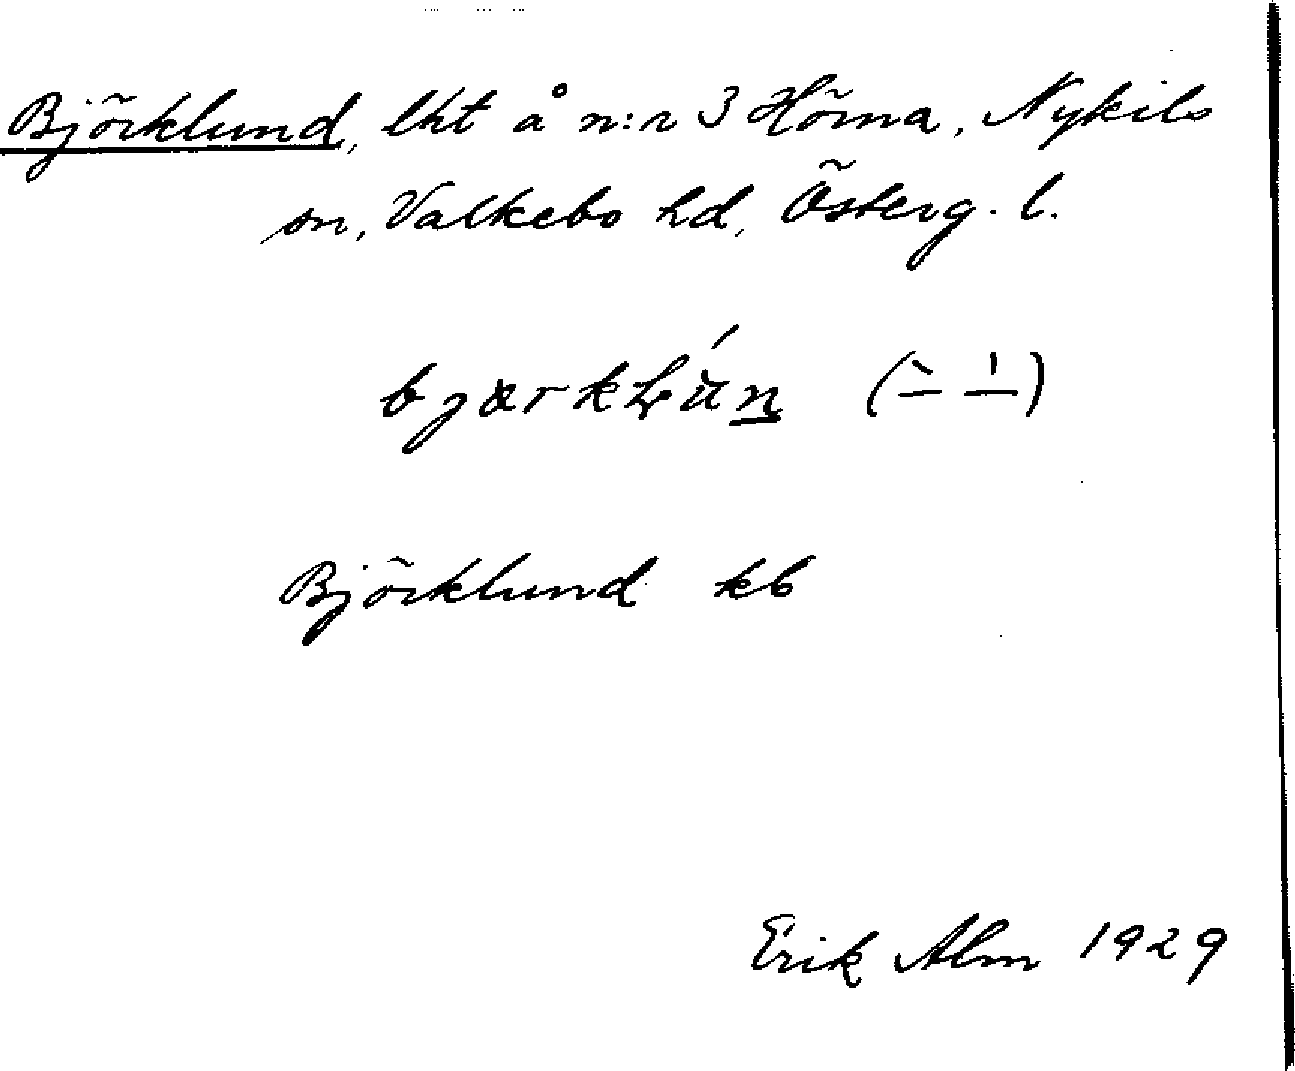 Björklund, lht å n:r 3 Hörna, Nykils
sn, Valkebo hd, Österg. l.
Björklund kb
Erik Alm 1929